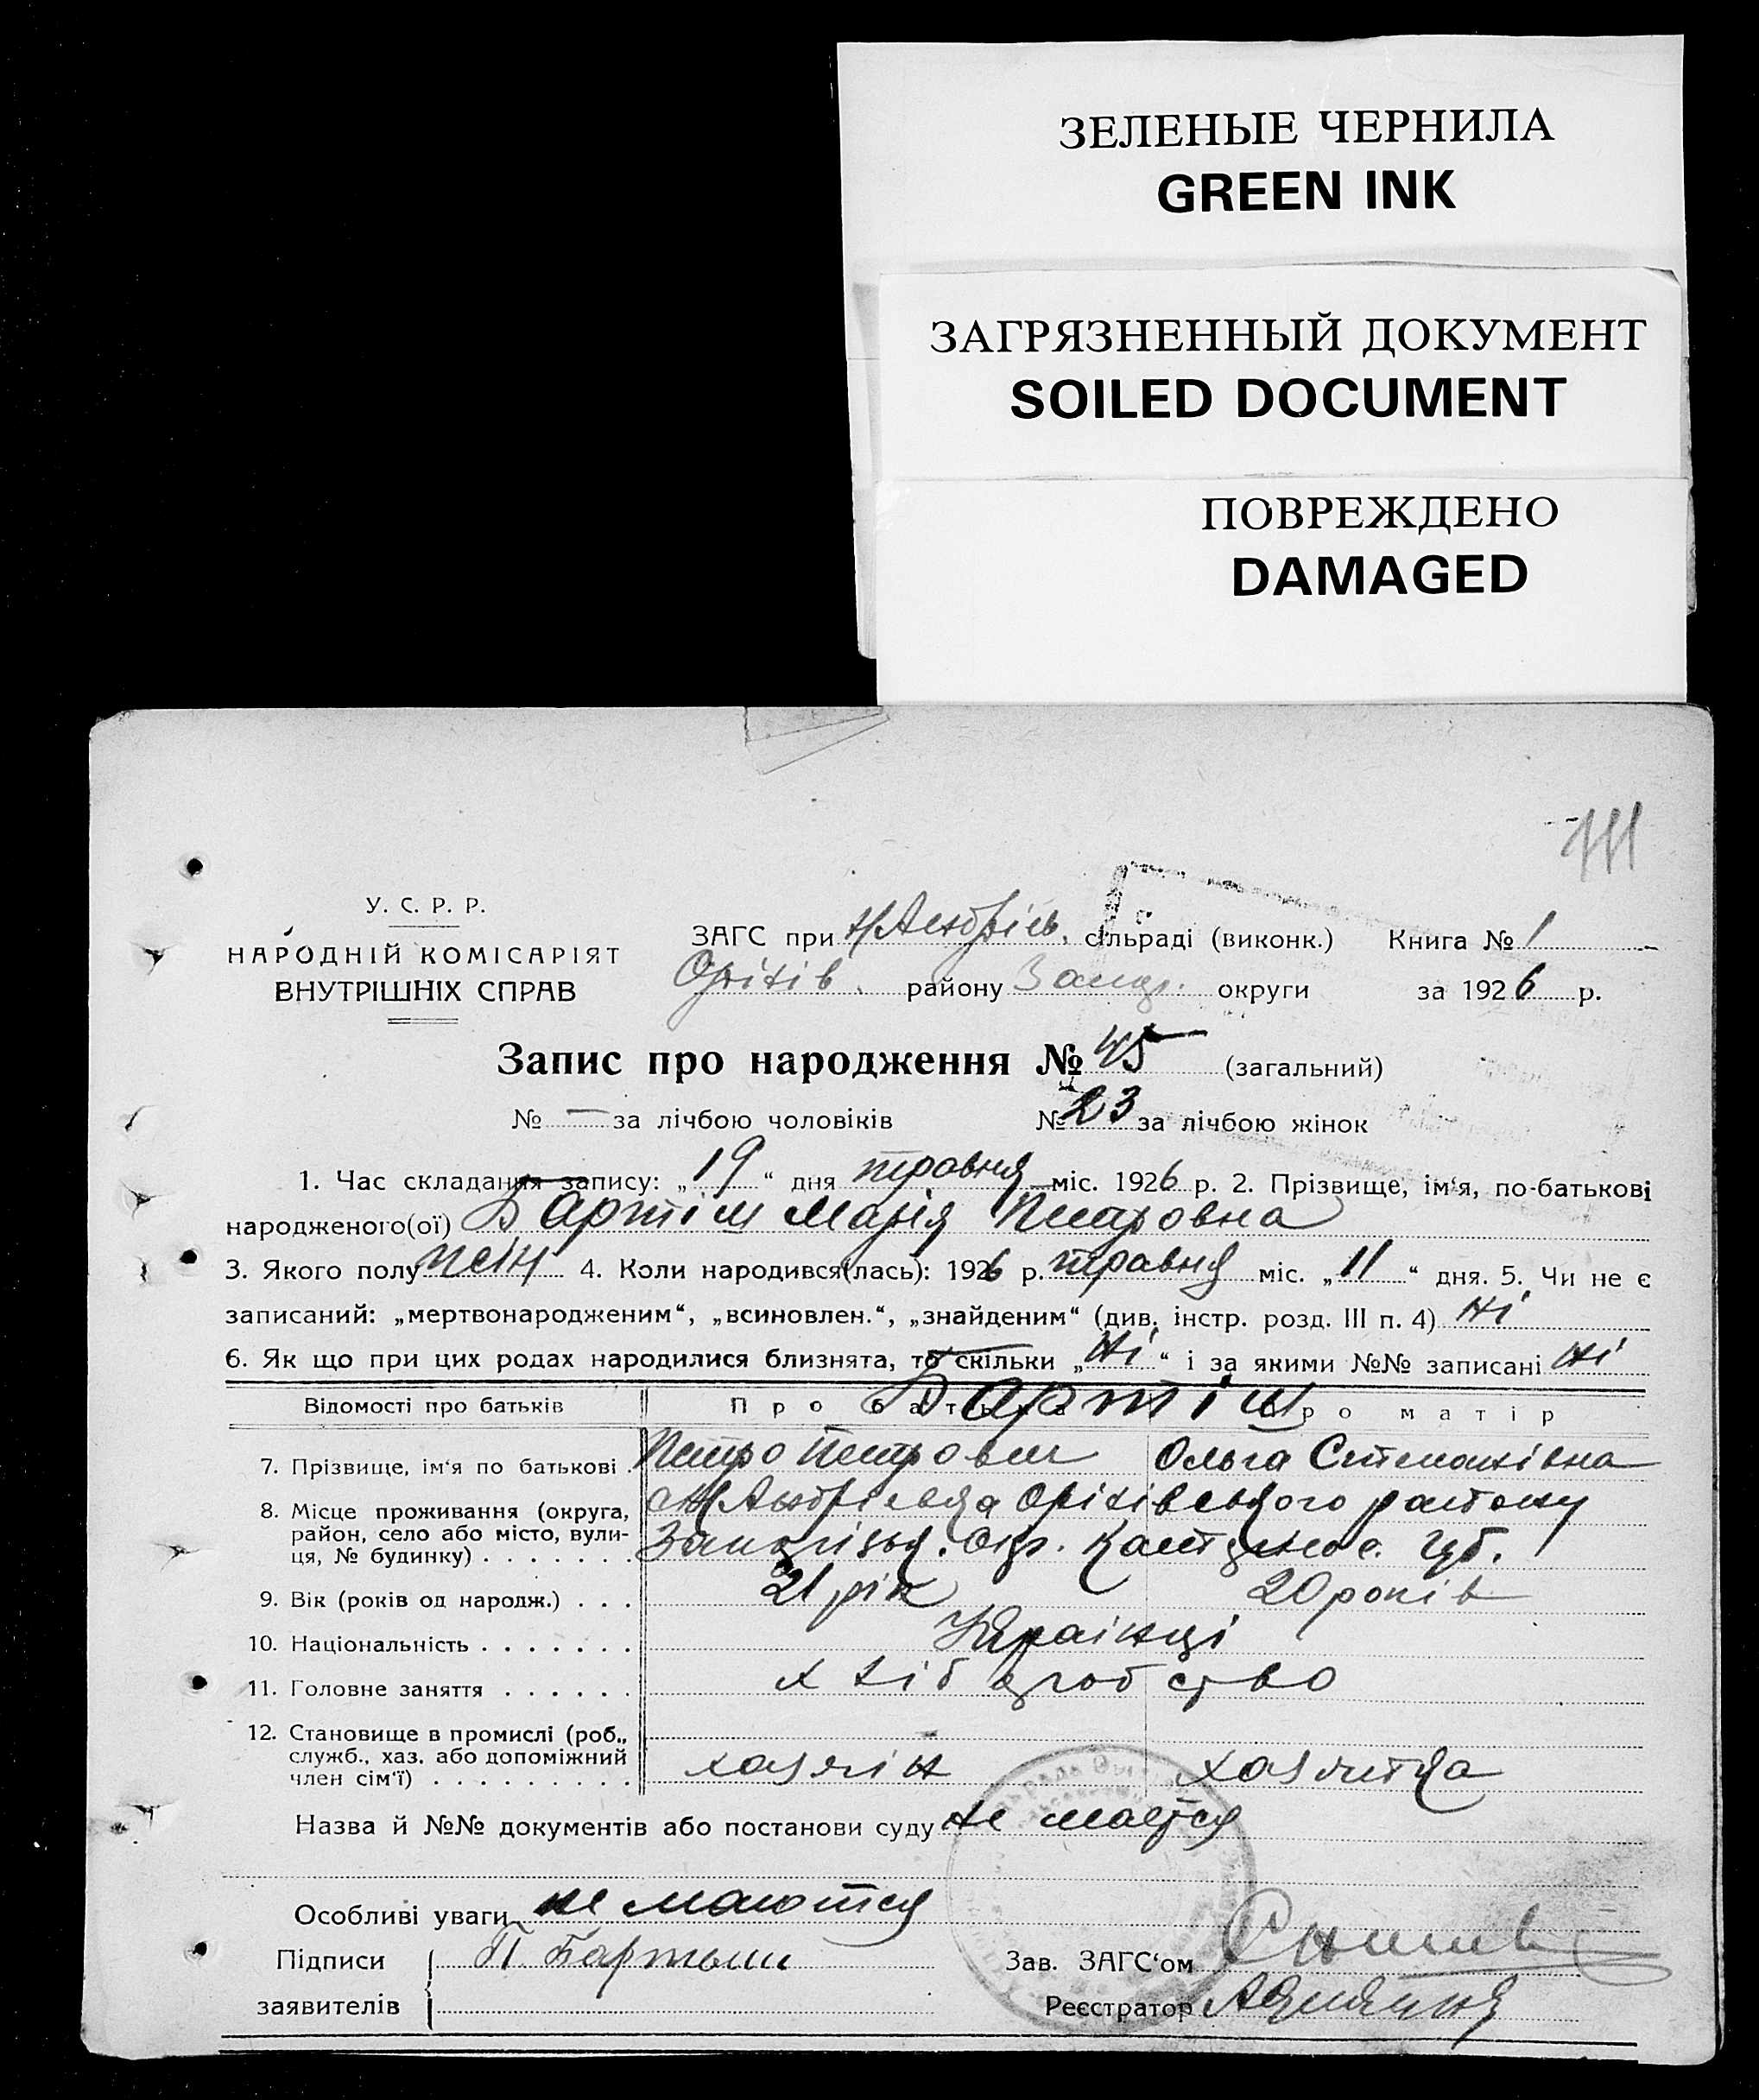 ЗЕЛЕНЫЕ ЧЕРНИЛА
GREEN INK
ЗАГРЯЗНЕННЫЙ ДОКУМЕНТ
SOILED DOCUMENT
ПОВРЕЖДЕНО
DAMAGED
У. С. Р. Р.
НАРОДНІЙ КОМІСАРІЯТ
ВНУТРІШНІХ СПРАВ
ЗАГС при Н Андріїв. сільраді (виконк.) Книга № 1
Оріхів. району Запор. округи за 1926 р.
Запис про народження № 45 (загальний)
№ — за лічбою чоловіків № 23 за лічбою жінок
1. Час складання запису: „19“ дня травня міс. 1926 р. 2. Прізвище, ім'я, по-батькові
народженого(ої) Бартіш Марія Петровна
3. Якого полу жін 4. Коли народився(лась): 1926 р. травня міс. „11“ дня. 5. Чи не є
записаний: „мертвонародженим“, „всиновлен.“, „знайденим“ (див. інстр. розд. III п. 4) ні
6. Як що при цих родах народилися близнята, то скільки „ні“ і за якими №№ записані ні
Відомості про батьків Про батька Про матір
Бартіш
7. Прізвище, ім'я по батькові . Петро Петрович Ольга Степанівна
8. Місце проживання (округа, район, село або місто, вулиця, № будинку) . . . . . . .
Н Андріевка Оріхівського району
Запорізьк. Окр. Катерин. Губ.
9. Вік (років од народж.) . . . 21 рік 20 років
10. Національність . . . . . . . Українці
11. Головне заняття . . . . . . хлібодробство
12. Становище в промислі (роб., служб., хаз. або допоміжний член сім'ї) . . . . . . . . . хазяїн хазяйка
Назва й №№ документів або постанови суду не мается
Особливі уваги не маются
Підписи П. Бартыш Зав. ЗАГС'ом
заявителів Реєстратор